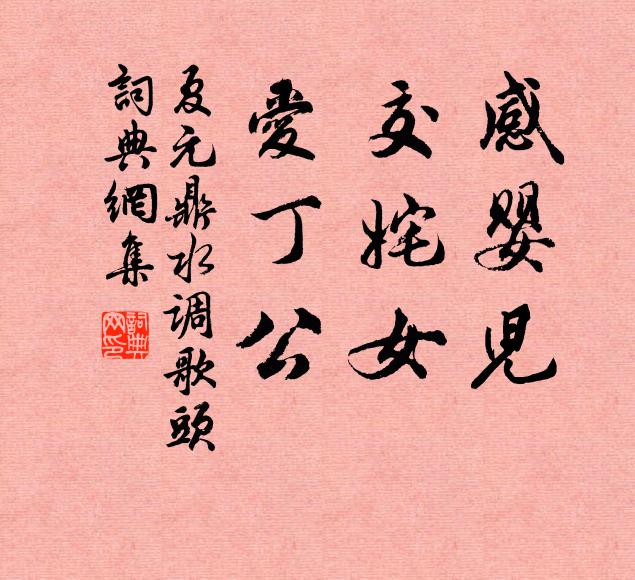 感嬰兒
交姹女
愛丁公
夏元鼎水调歌頭
詞典網集
詞典網印